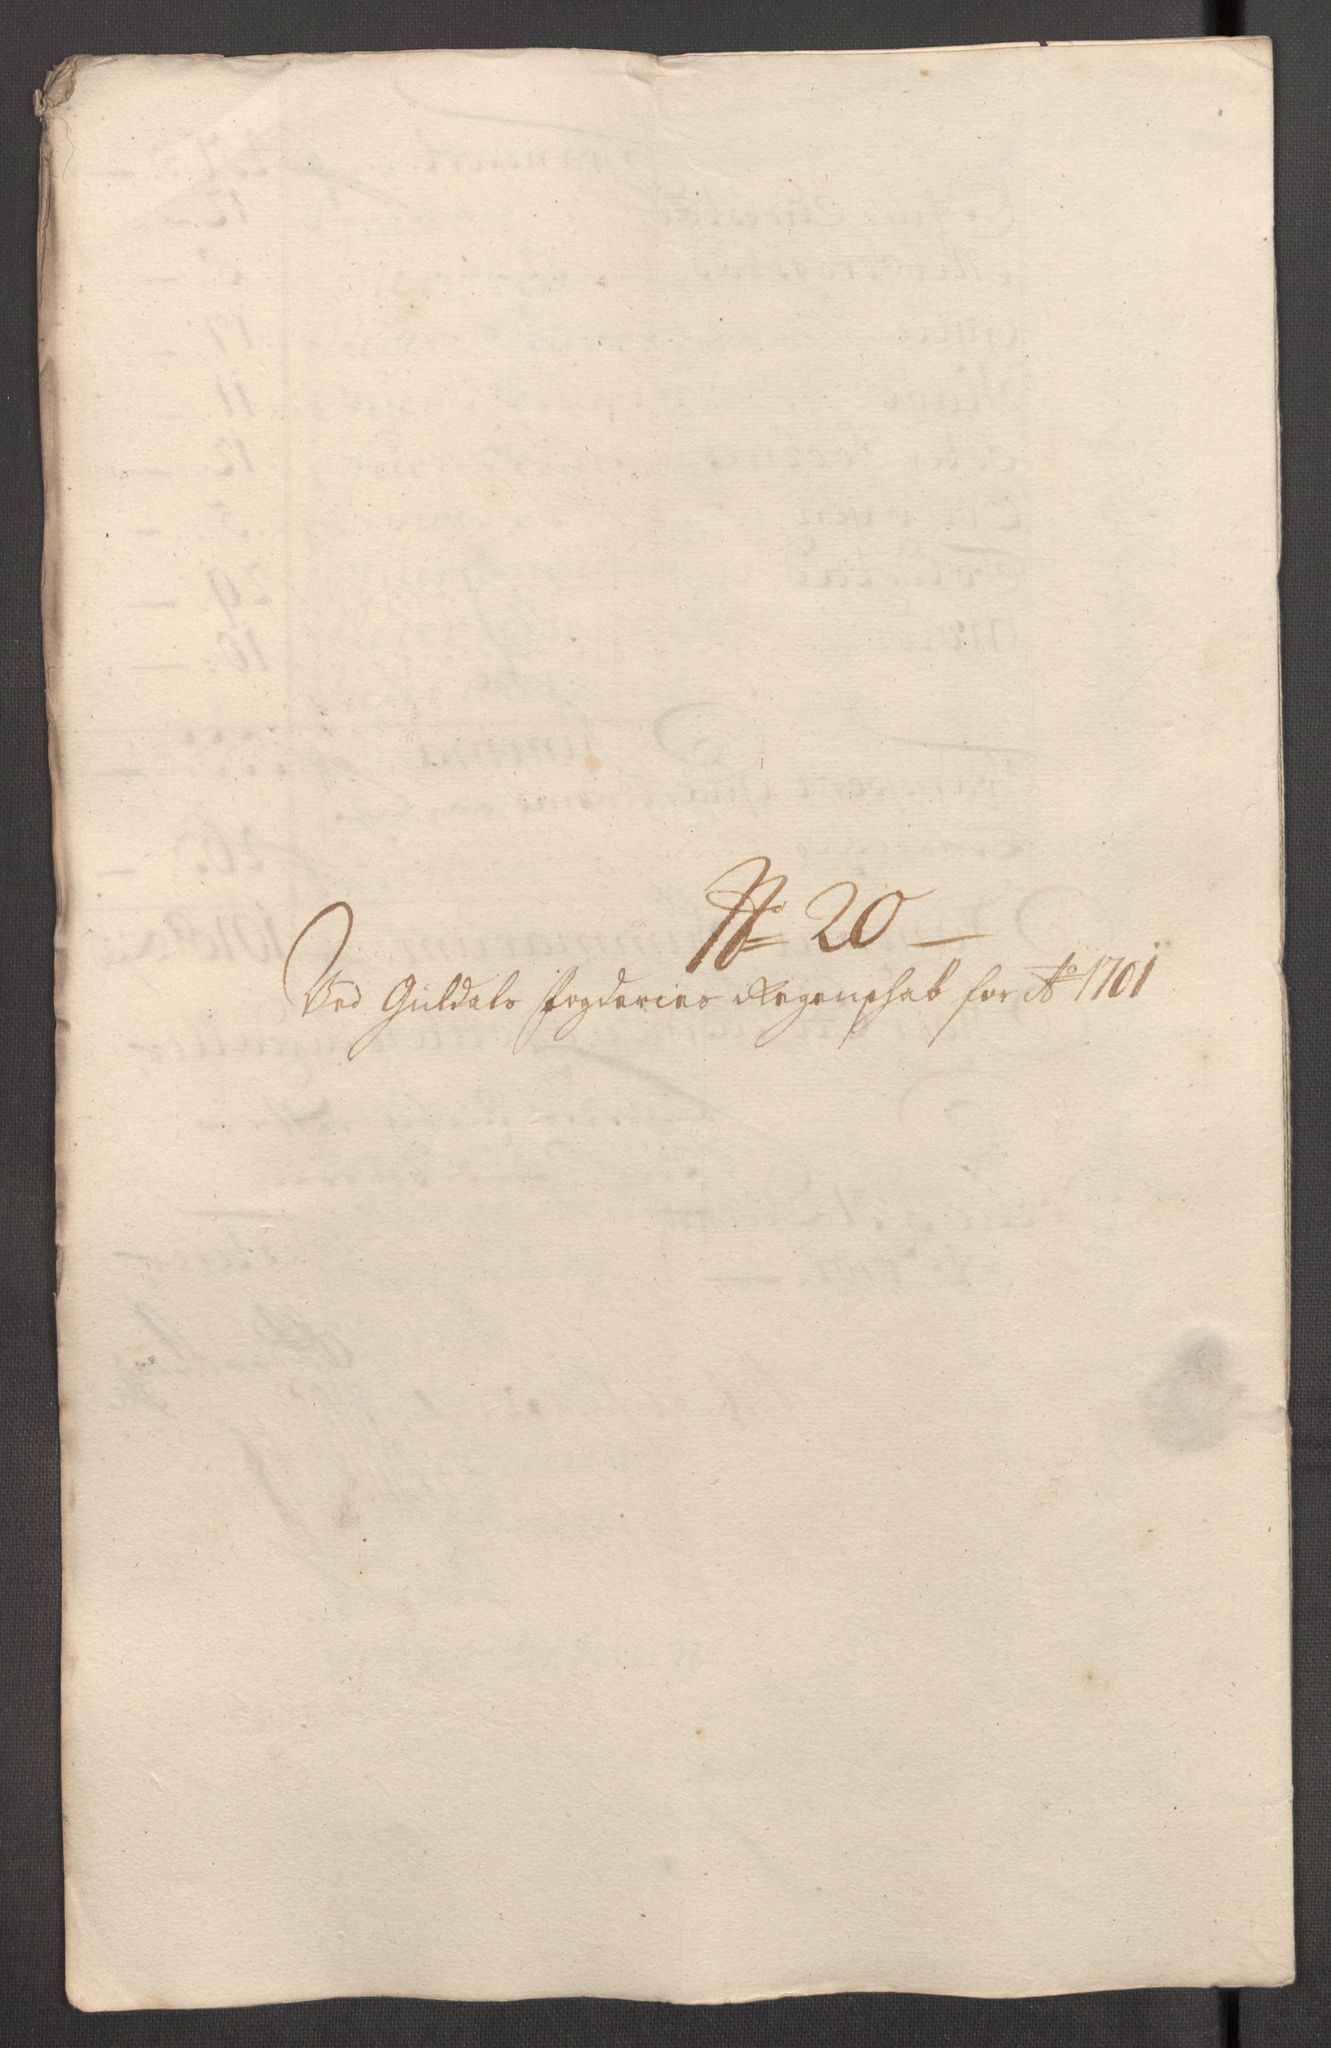 No 20 —
Ved Guldals fogderies Regenschab for Ao 1701